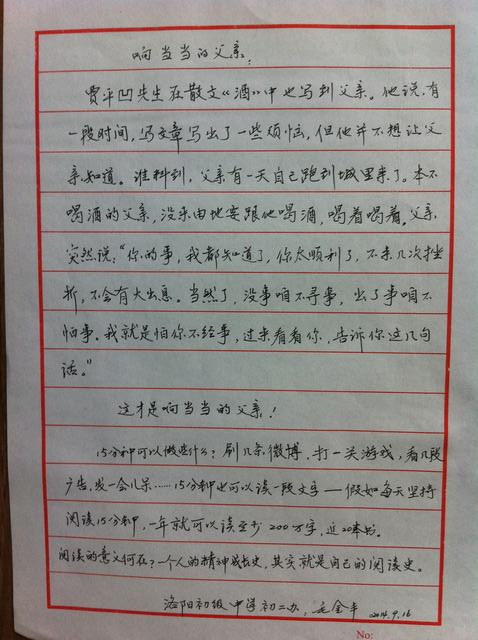 响当当的父亲:
贾平凹先生在散文《酒》中也写到父亲。他说,有
一段时间,写文章写出了一些烦恼,但他并不想让父
亲知道。谁料到,父亲有一天自己跑到城里来了。本不
喝酒的父亲,没来由地要跟他喝酒,喝着喝着,父亲
突然说:“你的事,我都知道了,你太顺利了,不来几次挫
折,不会有大出息。当然了,没事咱不寻事,出了事咱不
怕事。我就是怕你不经事,过来看看你,告诉你这几句
话。”
这才是响当当的父亲!
15分钟可以做些什么?刷几条微博,打一关游戏,看几段
广告,发一会儿呆……15分钟也可以读一段文字——假如每天坚持
阅读15分钟,一年就可以读至少200万字,近20本书。
阅读的意义何在?一个人的精神成长史,其实就是自己的阅读史。
洛阳初级中学初二办,金平 2014.9.16
No: